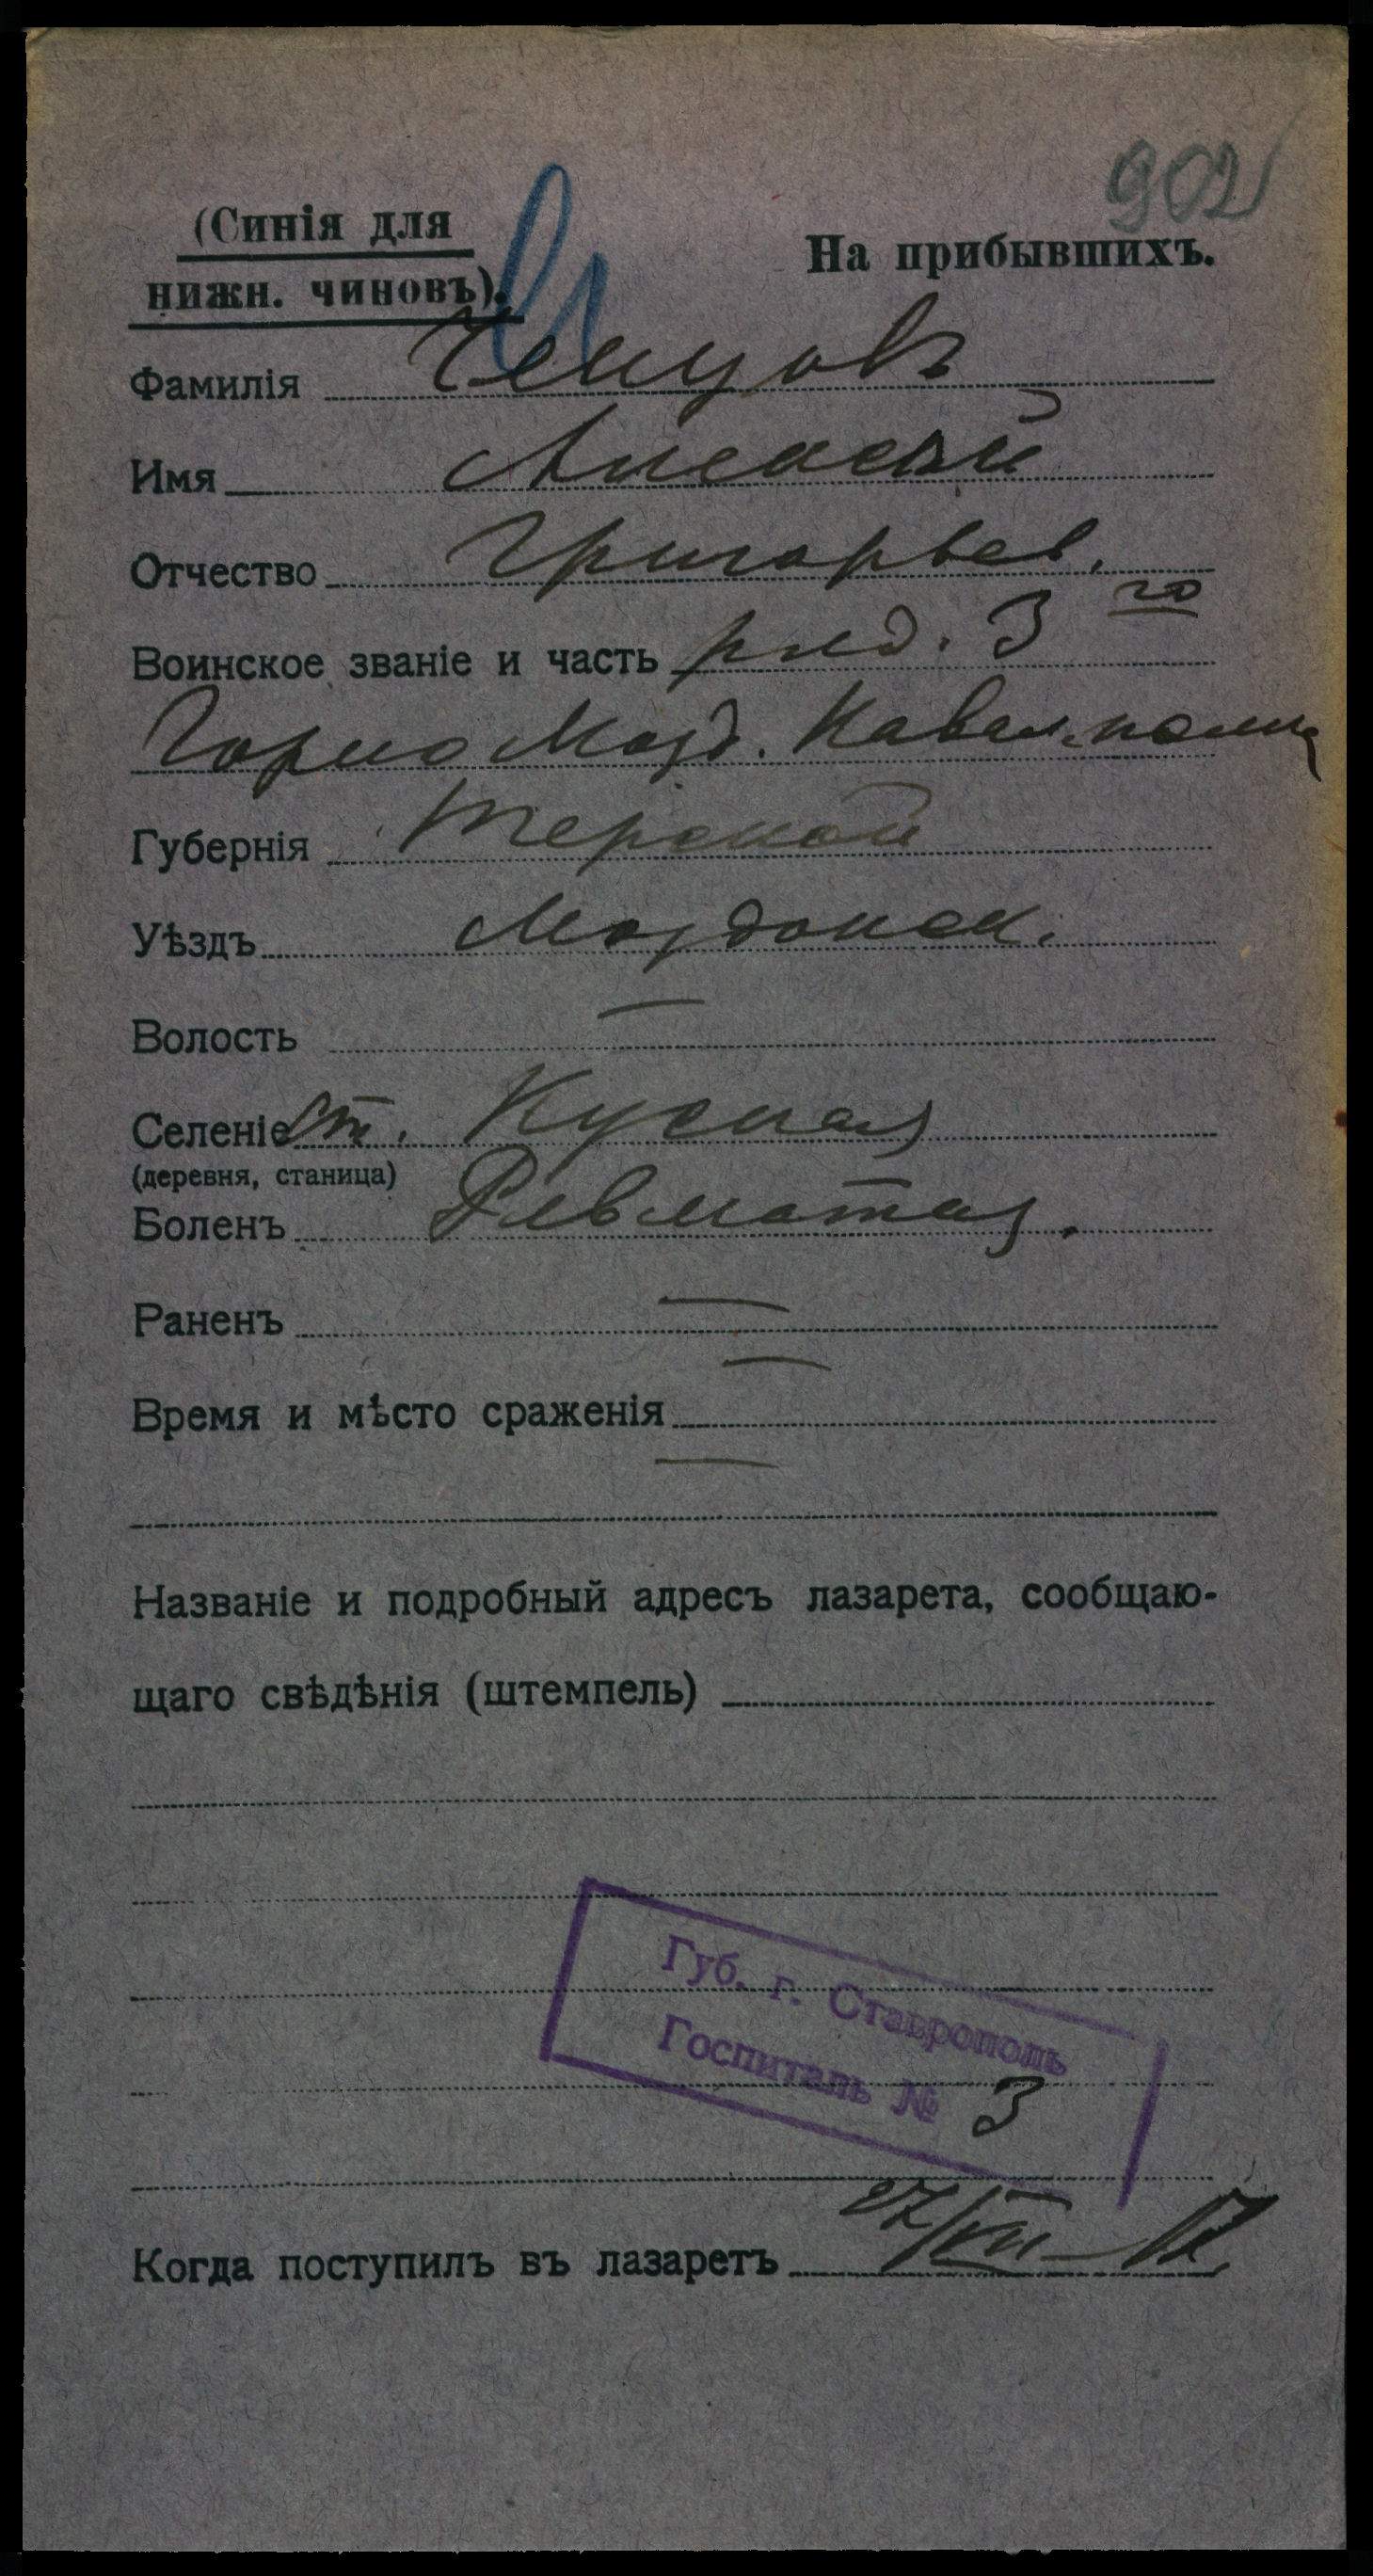 902
(Синія для
нижн. чиновъ).
На прибывшихъ.
Фамилія Ченцовъ
Имя Алексей
Отчество Григорьев.
Воинское званіе и часть ряд. 3го
Горно Мозд. Кавал. полка
Губернія Терской
Уѣздъ Моздокск.
Волость —
Селеніе ст. Курская
(деревня, станица)
Боленъ Ревматизм.
Раненъ —
Время и мѣсто сраженія —
—
Названіе и подробный адресъ лазарета, сообщаю-
щаго свѣдѣнія (штемпель)
Губ. г. Ставрополь
Госпиталь № 3
Когда поступилъ въ лазаретъ 27/VII–17.